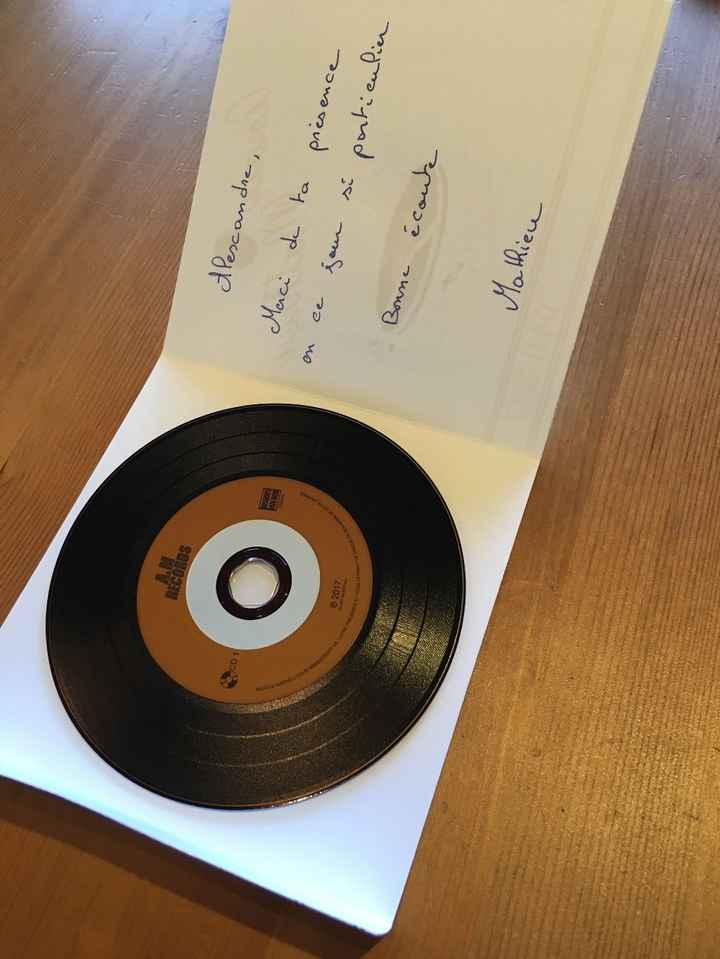 Alexandre,
Merci de ta présence
en ce jour si particulier
Bonne écoute
Mathieu
A.M
RECORDS
CD 1
© 2017